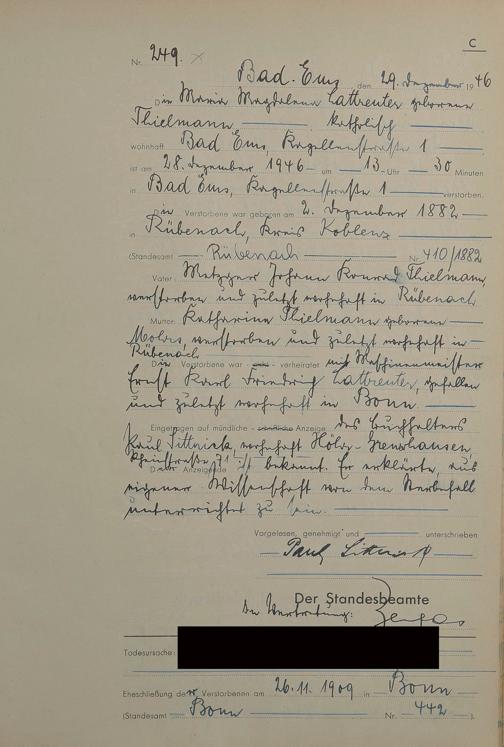 C
Nr. 249.
Bad-Ems, den 29. Dezember 1946
Die Maria Magdalena Lattreuter geborene
Thielmann, — katholisch —
wohnhaft Bad Ems, Kapellenstraße 1 —
ist am 28. Dezember 1946 — um — 13 — Uhr — 30 Minuten
in Bad Ems, Kapellenstraße 1 — verstorben.
Die Verstorbene war geboren am 2. Dezember 1882 —
in Rübenach, Kreis Koblenz —
(Standesamt — Rübenach — Nr. 410/1882
Vater: Metzger Johann Konrad Thielmann,
verstorben und zuletzt wohnhaft in Rübenach
Mutter: Katharina Thielmann geborene —
verstorben und zuletzt wohnhaft in —
Rübenach
Die Verstorbene war — nicht — verheiratet mit Maschinenmeister
Ernst Karl Friedrich Lattreuter, gefallen
und zuletzt wohnhaft in Bonn —
Eingetragen auf mündliche — schriftliche Anzeige des Buchhalters
Paul wohnhaft Höhr-Grenzhausen,
Rheinstraße 71
Der Anzeigende ist bekannt. Er erklärte, aus
eigener Wissenschaft von dem Sterbefall
unterrichtet zu sein. —
Vorgelesen, genehmigt und unterschrieben
Paul
Der Standesbeamte
In Vertretung:
Todesursache:
Eheschließung der Verstorbenen am 26.11.1909 in Bonn
(Standesamt Bonn Nr. 442 ).